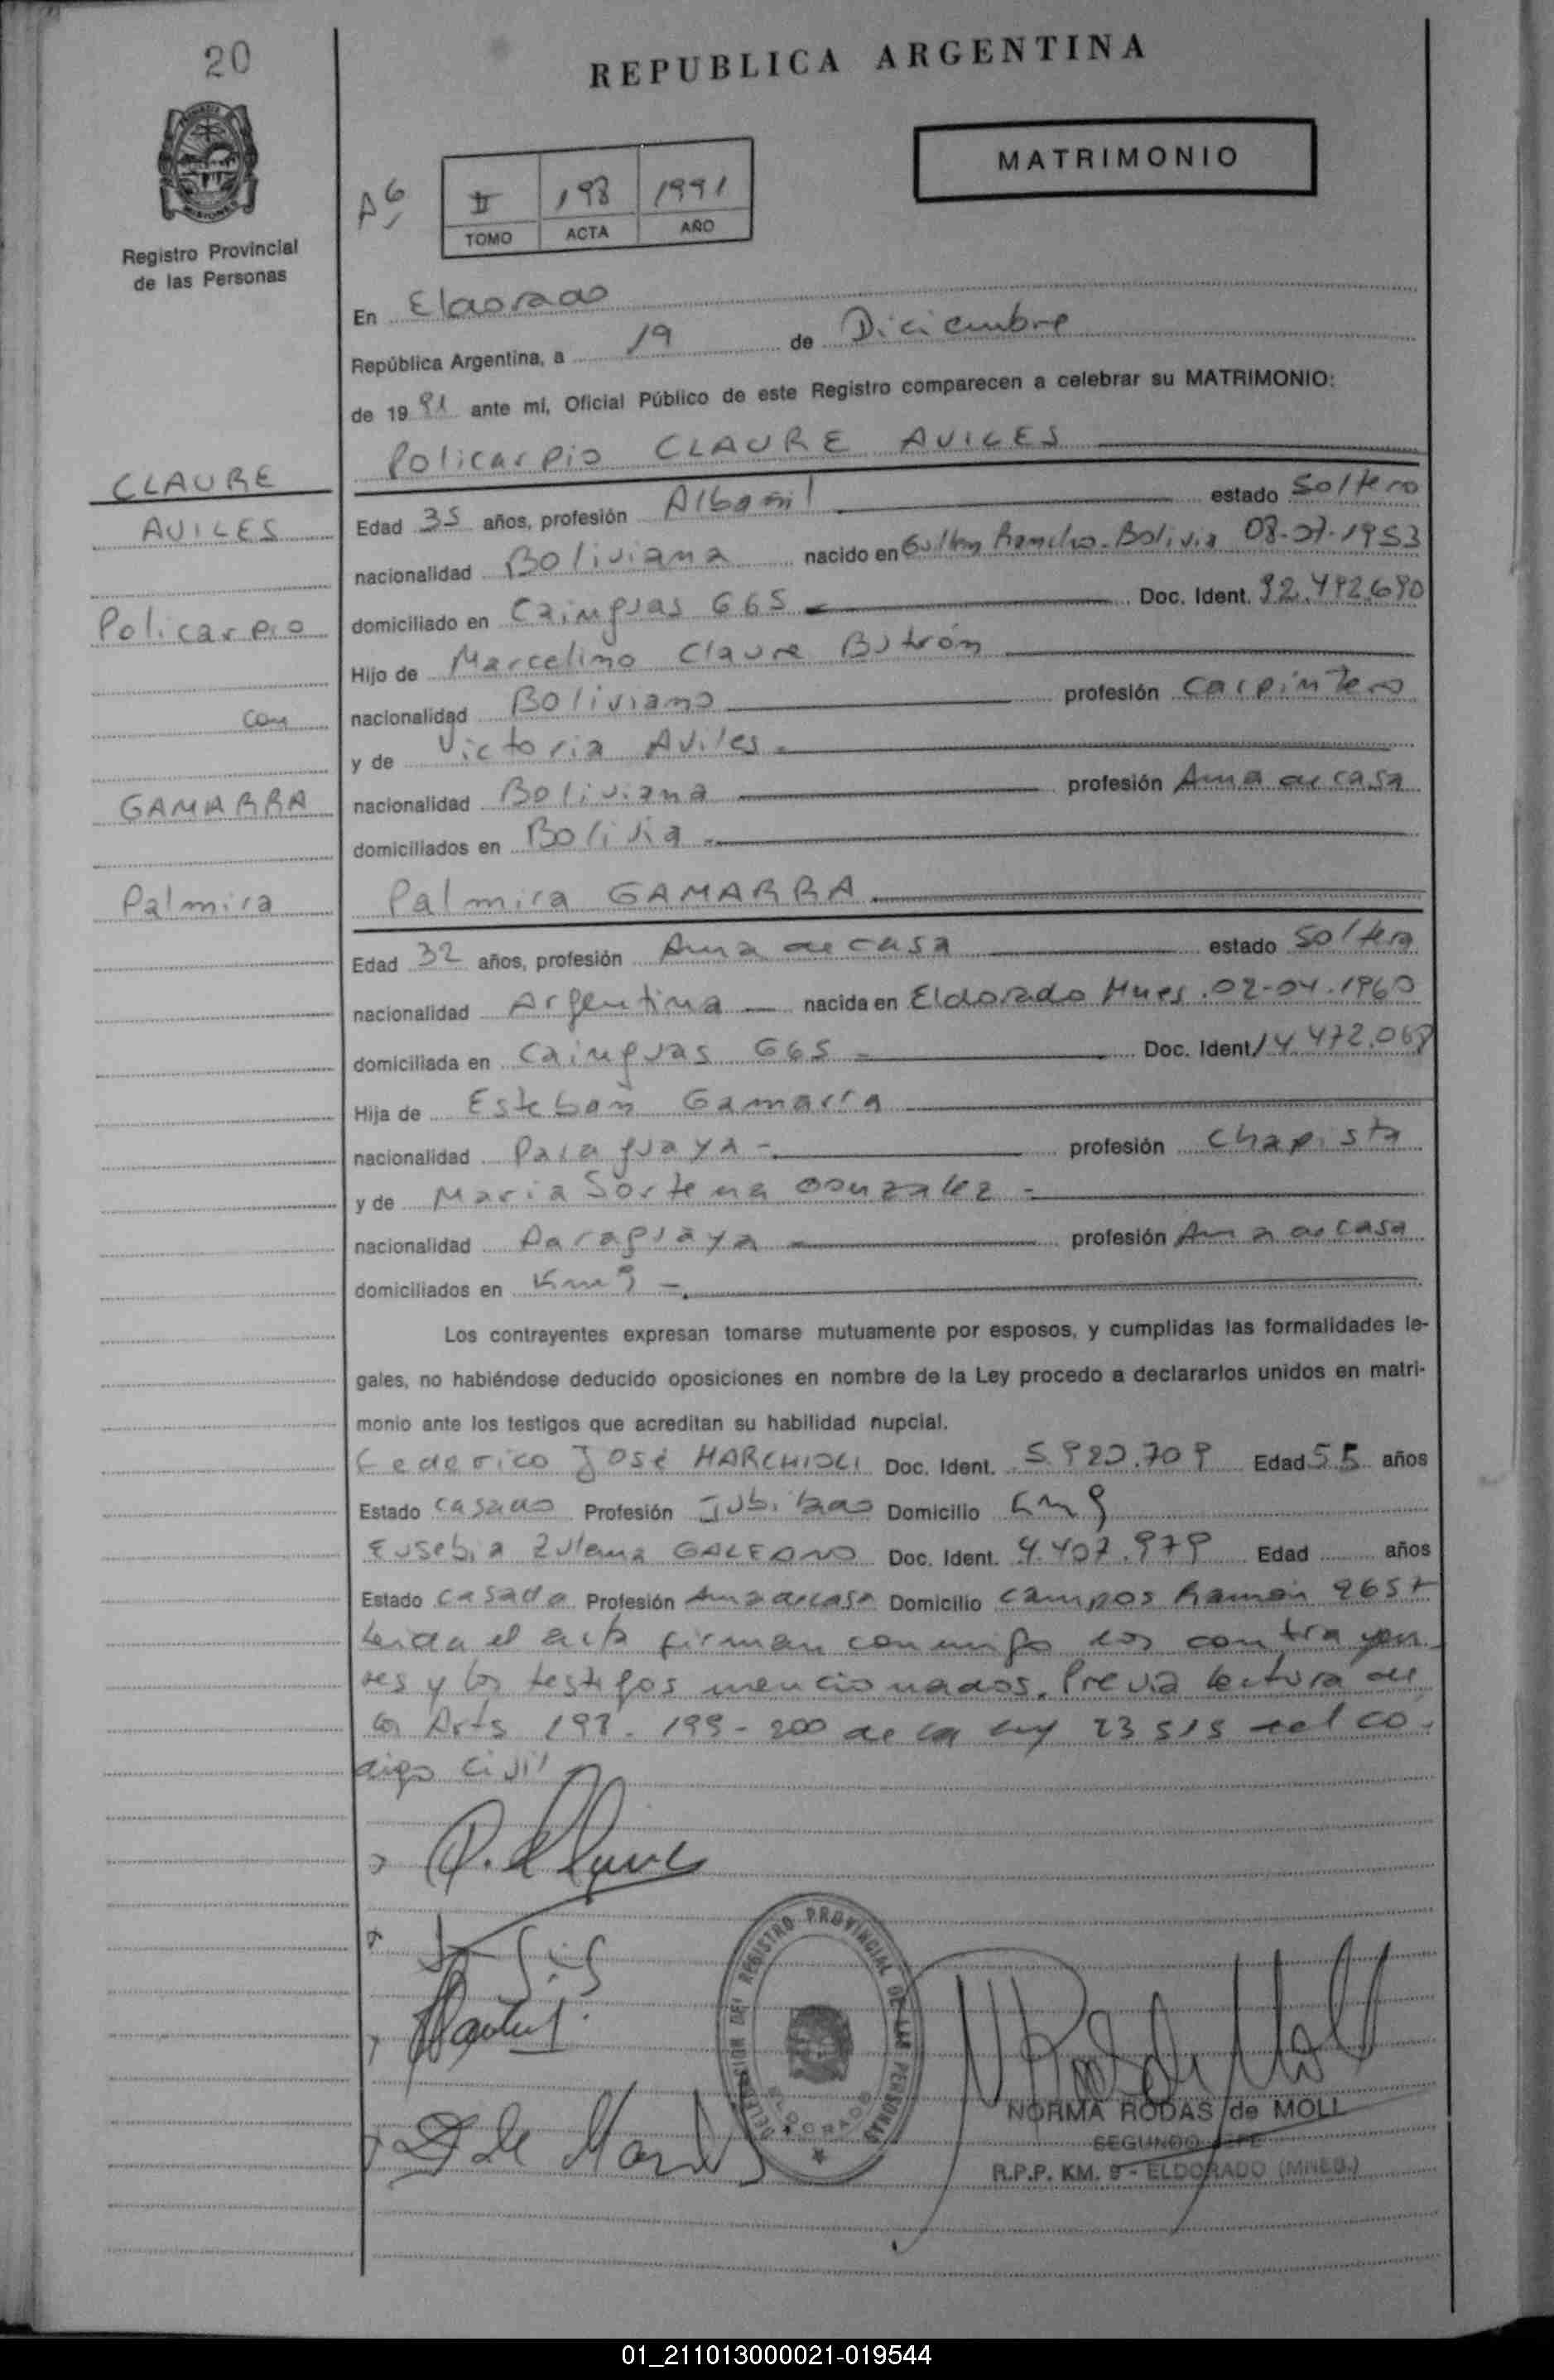 20
REPUBLICA ARGENTINA
MATRIMONIO
II 198 1991
TOMO ACTA AÑO
Registro Provincial
de las Personas
En Eldorado
República Argentina, a 19 de Diciembre
de 1991 ante mí, Oficial Público de este Registro comparecen a celebrar su MATRIMONIO:
Policarpio CLAURE AVILES
CLAURE
AVILES
Policarpio
con
GAMARRA
Palmira
Edad 35 años, profesión Albañil estado Soltero
nacionalidad Boliviana nacido en Bolivia 08-07-1953
domiciliado en Cainguas 665 Doc. Ident. 92.492.690
Hijo de Marcelino Claure Butrón
nacionalidad Boliviano profesión Carpintero
y de Victoria Aviles
nacionalidad Boliviana profesión Ama de casa
domiciliados en Bolivia
Palmira GAMARRA
Edad 32 años, profesión Ama de casa estado Soltera
nacionalidad Argentina nacida en Eldorado Mnes. 02-04-1960
domiciliada en Cainguas 665 Doc. Ident. 14.472.068
Hija de Esteban Gamarra
nacionalidad Paraguaya profesión Chapista
y de Maria Gonzalez
nacionalidad Paraguaya profesión Ama de casa
domiciliados en Km 9
Los contrayentes expresan tomarse mutuamente por esposos, y cumplidas las formalidades le-
gales, no habiéndose deducido oposiciones en nombre de la Ley procedo a declararlos unidos en matri-
monio ante los testigos que acreditan su habilidad nupcial.
José MARCHIOLI Doc. Ident. Edad 55 años
Estado casado Profesión Jubilado Domicilio Km 9
Eusebia Zulema GALEANO Doc. Ident. 4.407.979 Edad años
Estado Casada Profesión Ama de casa Domicilio Campos Ramón 2657
Leida el acta firman conmigo los contrayen-
tes y los testigos mencionados. Previa lectura de
los Arts 198-199-200 de la Ley 23515 del Co-
digo Civil
DELEGACION DEL REGISTRO PROVINCIAL DE LAS PERSONAS
ELDORADO
NORMA RODAS de MOLL
SEGUNDO JEFE
R.P.P. KM. 9 - ELDORADO (MNES.)
01_211013000021-019544